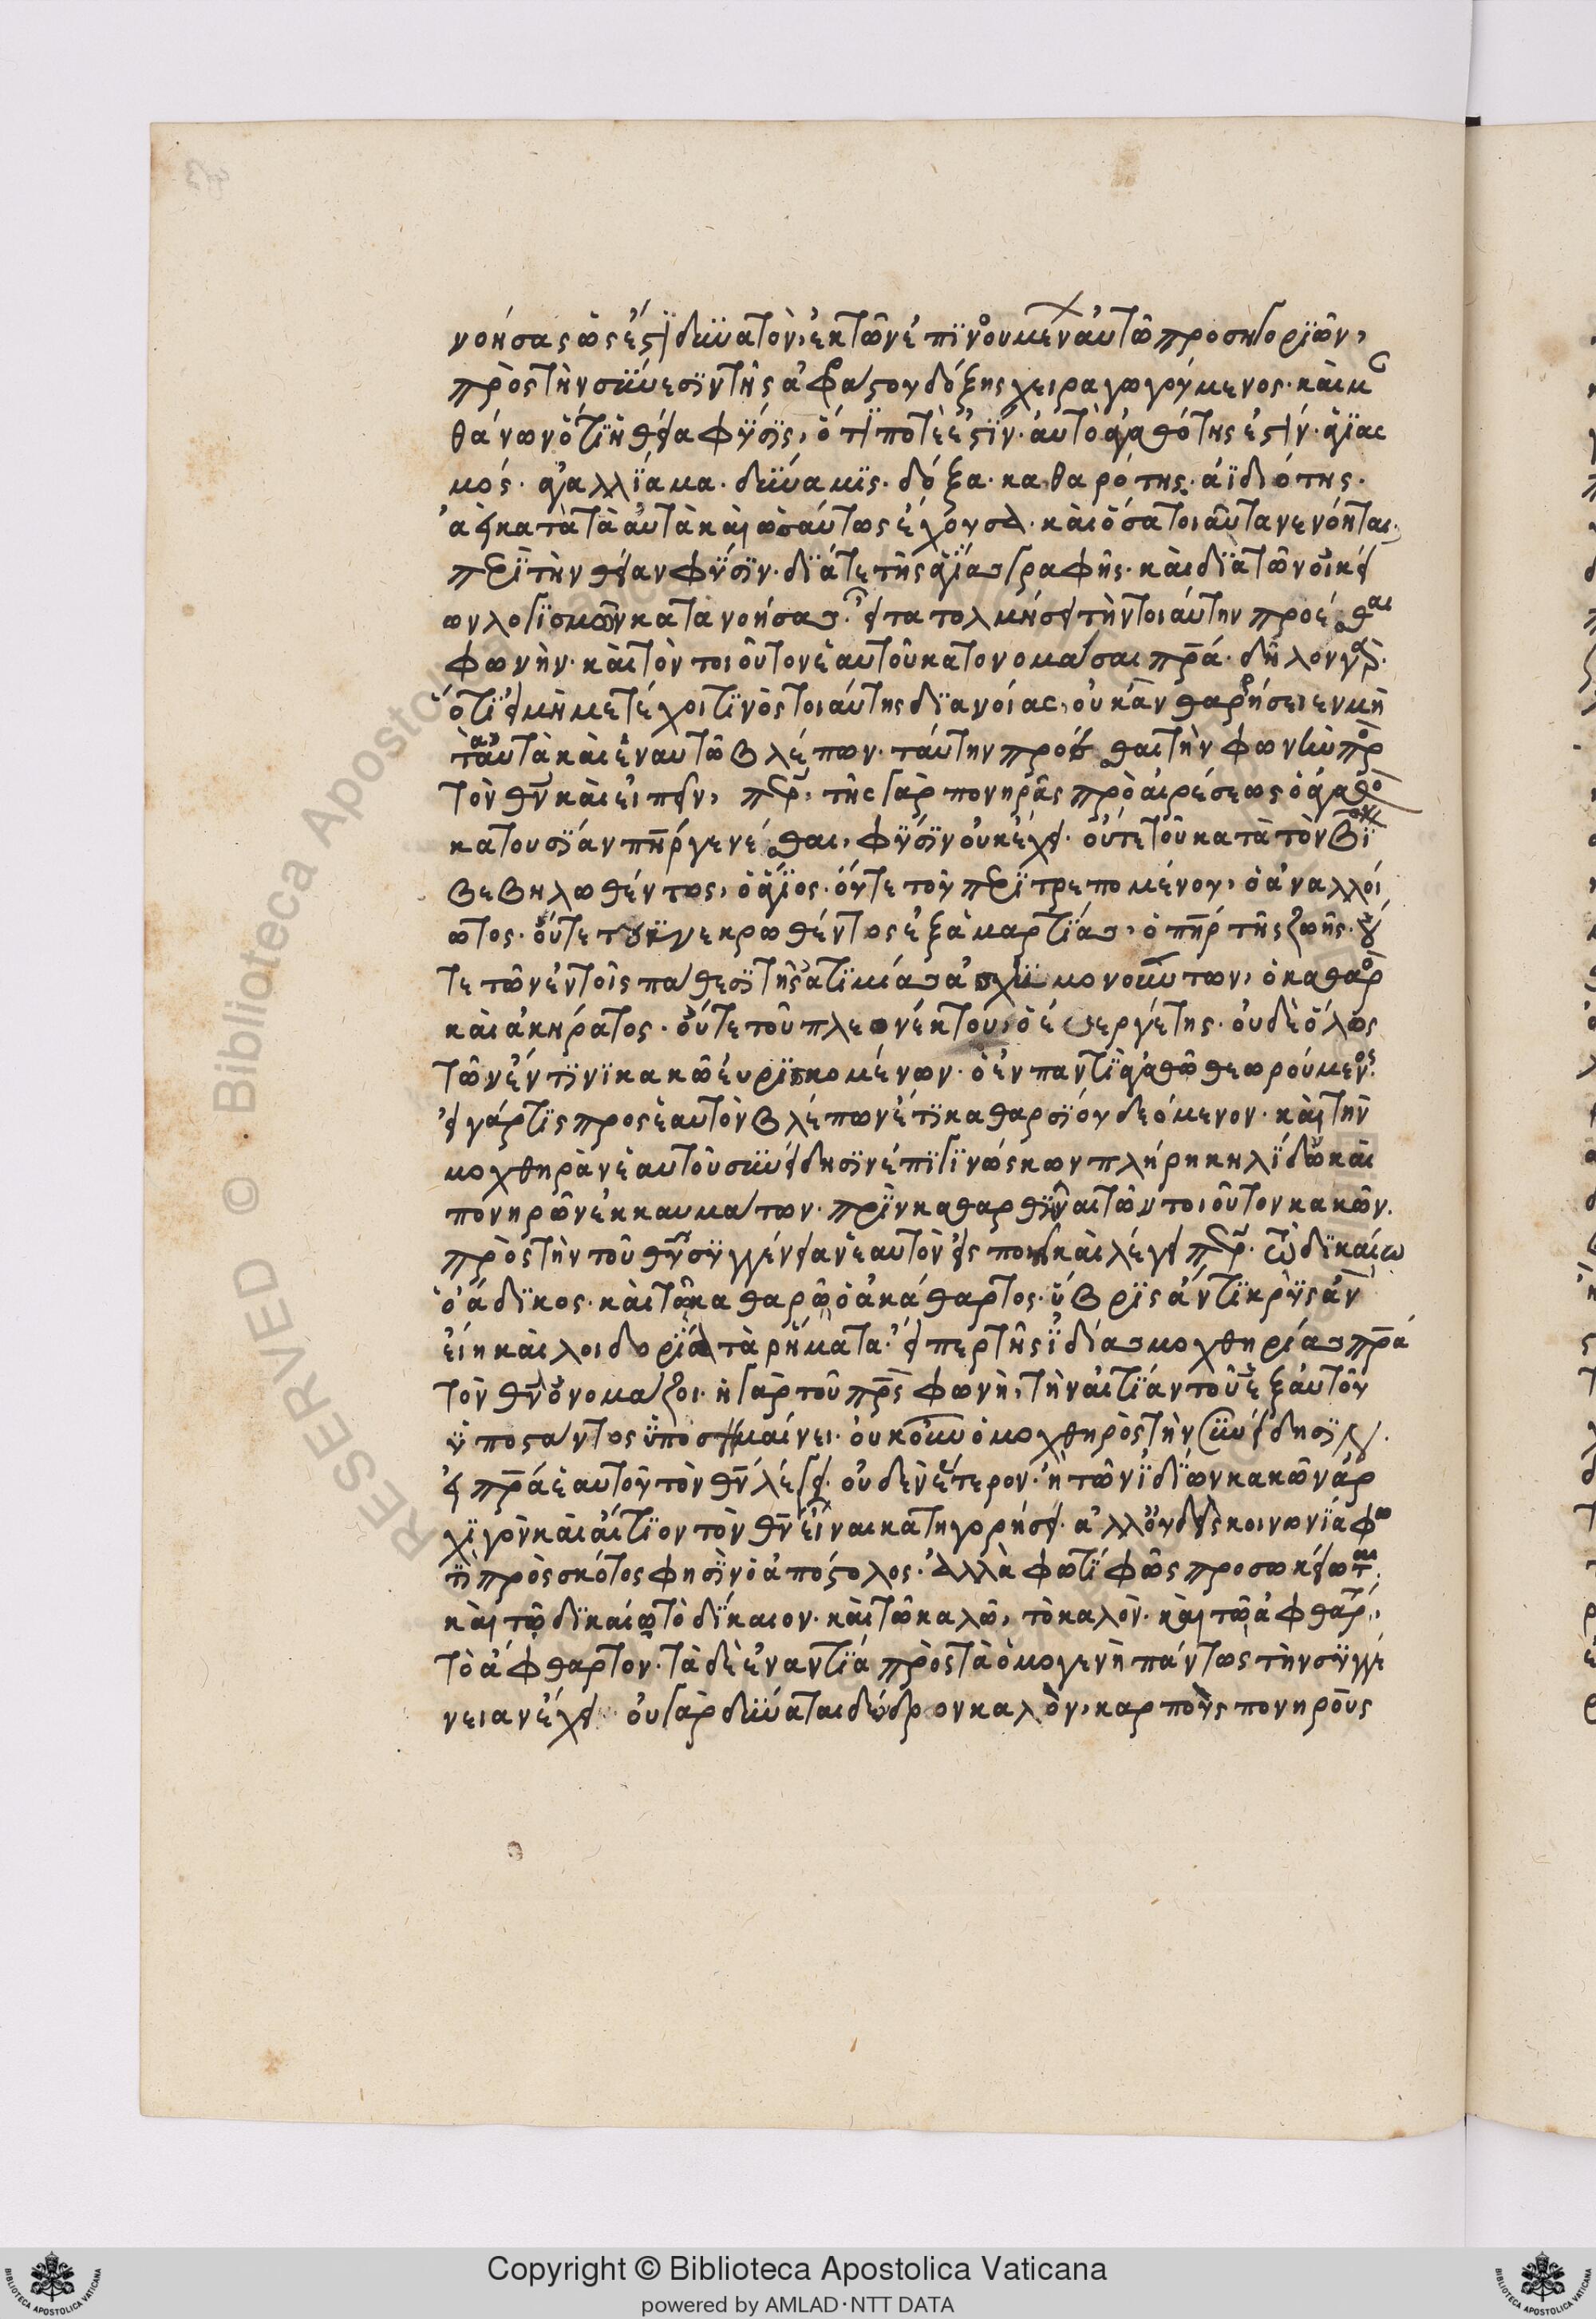 νοήσας ὡς ἐστῒ δϋνατὸν, ἐκ τῶν ἐπϊνοουμένων αὐτῶ προσηγορϊῶν,
πρὸς τὴν σϋνεσϊν τῆς ἀφράστου δόξης χειραγωγούμενος. καὶ μ
θάνων ὅτϊ ἡ θεία φϋσϊς, ὅ τϊ ποτὲ ἐστϊν. ἀυτὸ ἀγαθότης ἐστϊν. ἁγϊασ
μός. ἀγαλλϊαμα. δϋναμϊς. δόξα. καθαρότης. ἀϊδϊότης.
ἀεὶ κατὰ τὰ ἀυτὰ καὶ ὡσάυτως ἔχουσα. καὶ ὅσα τοιαῦτα νενόηται,
περϊ τὴν θείαν φϋσϊν. δϊά τε τῆς ἁγίας γραφῆς. καὶ δϊὰ τῶν οἰκεί
ων λογϊσμῶν κατανοήσας. εἶτα τολμήσει τὴν τοιάυτην προέσθαι
φωνὴν. καὶ τὸν τοιοῦτον ἑαυτοῦ κατονομάσαι πρά. δῆλον γὰρ.
ὅτϊ εἰ μὴ μετέχοι τϊνὸς τοιάυτης δϊανοίας, οὐκ ἂν θαρρήσειεν μὴ
ταυτὰ καὶ ἐν αυτῶ βλέπων. τάυτην προέσθαι τὴν φωνὴν πρὸς
τὸν θν καὶ εἰπεῖν, περ, τῆς γὰρ πονηρᾶς προαιρέσεως ὁ ἀγαθὸ
κατουσϊαν πηρ γενέσθαι, φϋσϊν οὐκ ἔχει. οὔτε τοῦ κατὰ τὸν βϊον
βεβηλωθέντος, ὁ ἅγϊος. οὔτε τοῦ περϊτρεπομένου, ὁ ἀναλλοί
ωτος. οὔτε τοῦ νεκρωθέντος ἐξ ἁμαρτϊας, ὁ πηρ τῆς ζωῆς. οὔ
τε τῶν ἐν τοῖς πάθεσϊ τῆς ἀτϊμίας ἀσχϊμονούντων, ὁ καθαρὸς
καὶ ἀκήρατος. οὔτε τοῦ πλεονέκτου, ὁ ἐυεργέτης. οὐδὲ ὅλως
τῶν ἐν τϊνϊ κακῶ ἑυρϊσκομένων. ὁ ἐν παντϊ ἀγαθῶ θεωρούμενος.
εἰ γάρ τϊς προς ἑαυτὸν βλέπων ἔτϊ καθαρσϊου δεόμενον. καὶ τὴν
μοχθηρὰν ἑαυτοῦ σϋνείδησϊν ἐπϊγϊνώσκων πλήρη κηλϊδων καὶ
πονηρῶν ἐκκαυμάτων. πρϊν καθαρθῆναι τῶν τοιοῦτον κακῶν.
πρὸς τὴν τοῦ θυ σϋγγένειαν ἑαυτὸν εἰς ποιεῖ καὶ λέγει περ. τῶ δϊκαίω
ὁ ἄδϊκος. καὶ τῶ καθαρῶ ὁ ἀκάθαρτος. ὕβρϊς ἄντϊκρϋς ἂν
εἴη καὶ λοιδορϊα τὰ ρήματα. εἴπερ τῆς ἰδίας μοχθηρίας πρά
τὸν θν ὀνομάζοι. ἡ γὰρ τοῦ πρς φωνὴ, τὴν αἰτϊαν τοῦ ἐξ ἀυτοῦ
ϋποστάντος ϋποσημαίνει. οὐκοῦν ὁ μοχθηρὸς τὴν σϋνείδησϊν.
εἰ πρά ἑαυτοῦ τὸν θν λέγει. οὐδὲν ἕτερον. ἢ τῶν ϊδϊων κακῶν ἀρ
χϊγὸν καὶ αἴτϊον τὸν θν εἶναι κατηγορήσει. ἀλλ οὐδεὶς κοινωνϊα φω
τϊ πρὸς σκότος φησϊν ὁ ἀπόστολος. ἀλλὰ φωτϊ φῶς προσωκείωται.
καὶ τῶ δϊκαίω τὸ δϊκαιον. καὶ τῶ καλῶ, τὸ καλὸν. καὶ τῶ ἀφθάρ,
τὸ ἄφθαρτον. τὰ δὲ ἐναντϊα πρὸς τὰ ὁμογενὴ πάντως τὴν σϋγγέ
νειαν ἔχει. οὐ γὰρ δϋναται δένδρον καλὸν, καρποὺς πονηροὺς
RESERVED © Biblioteca Apostolica
Copyright © Biblioteca Apostolica Vaticana
powered by AMLAD·NTT DATA
BIBLIOTECA APOSTOLICA VATICANA
BIBLIOTECA APOSTOLICA VATICANA